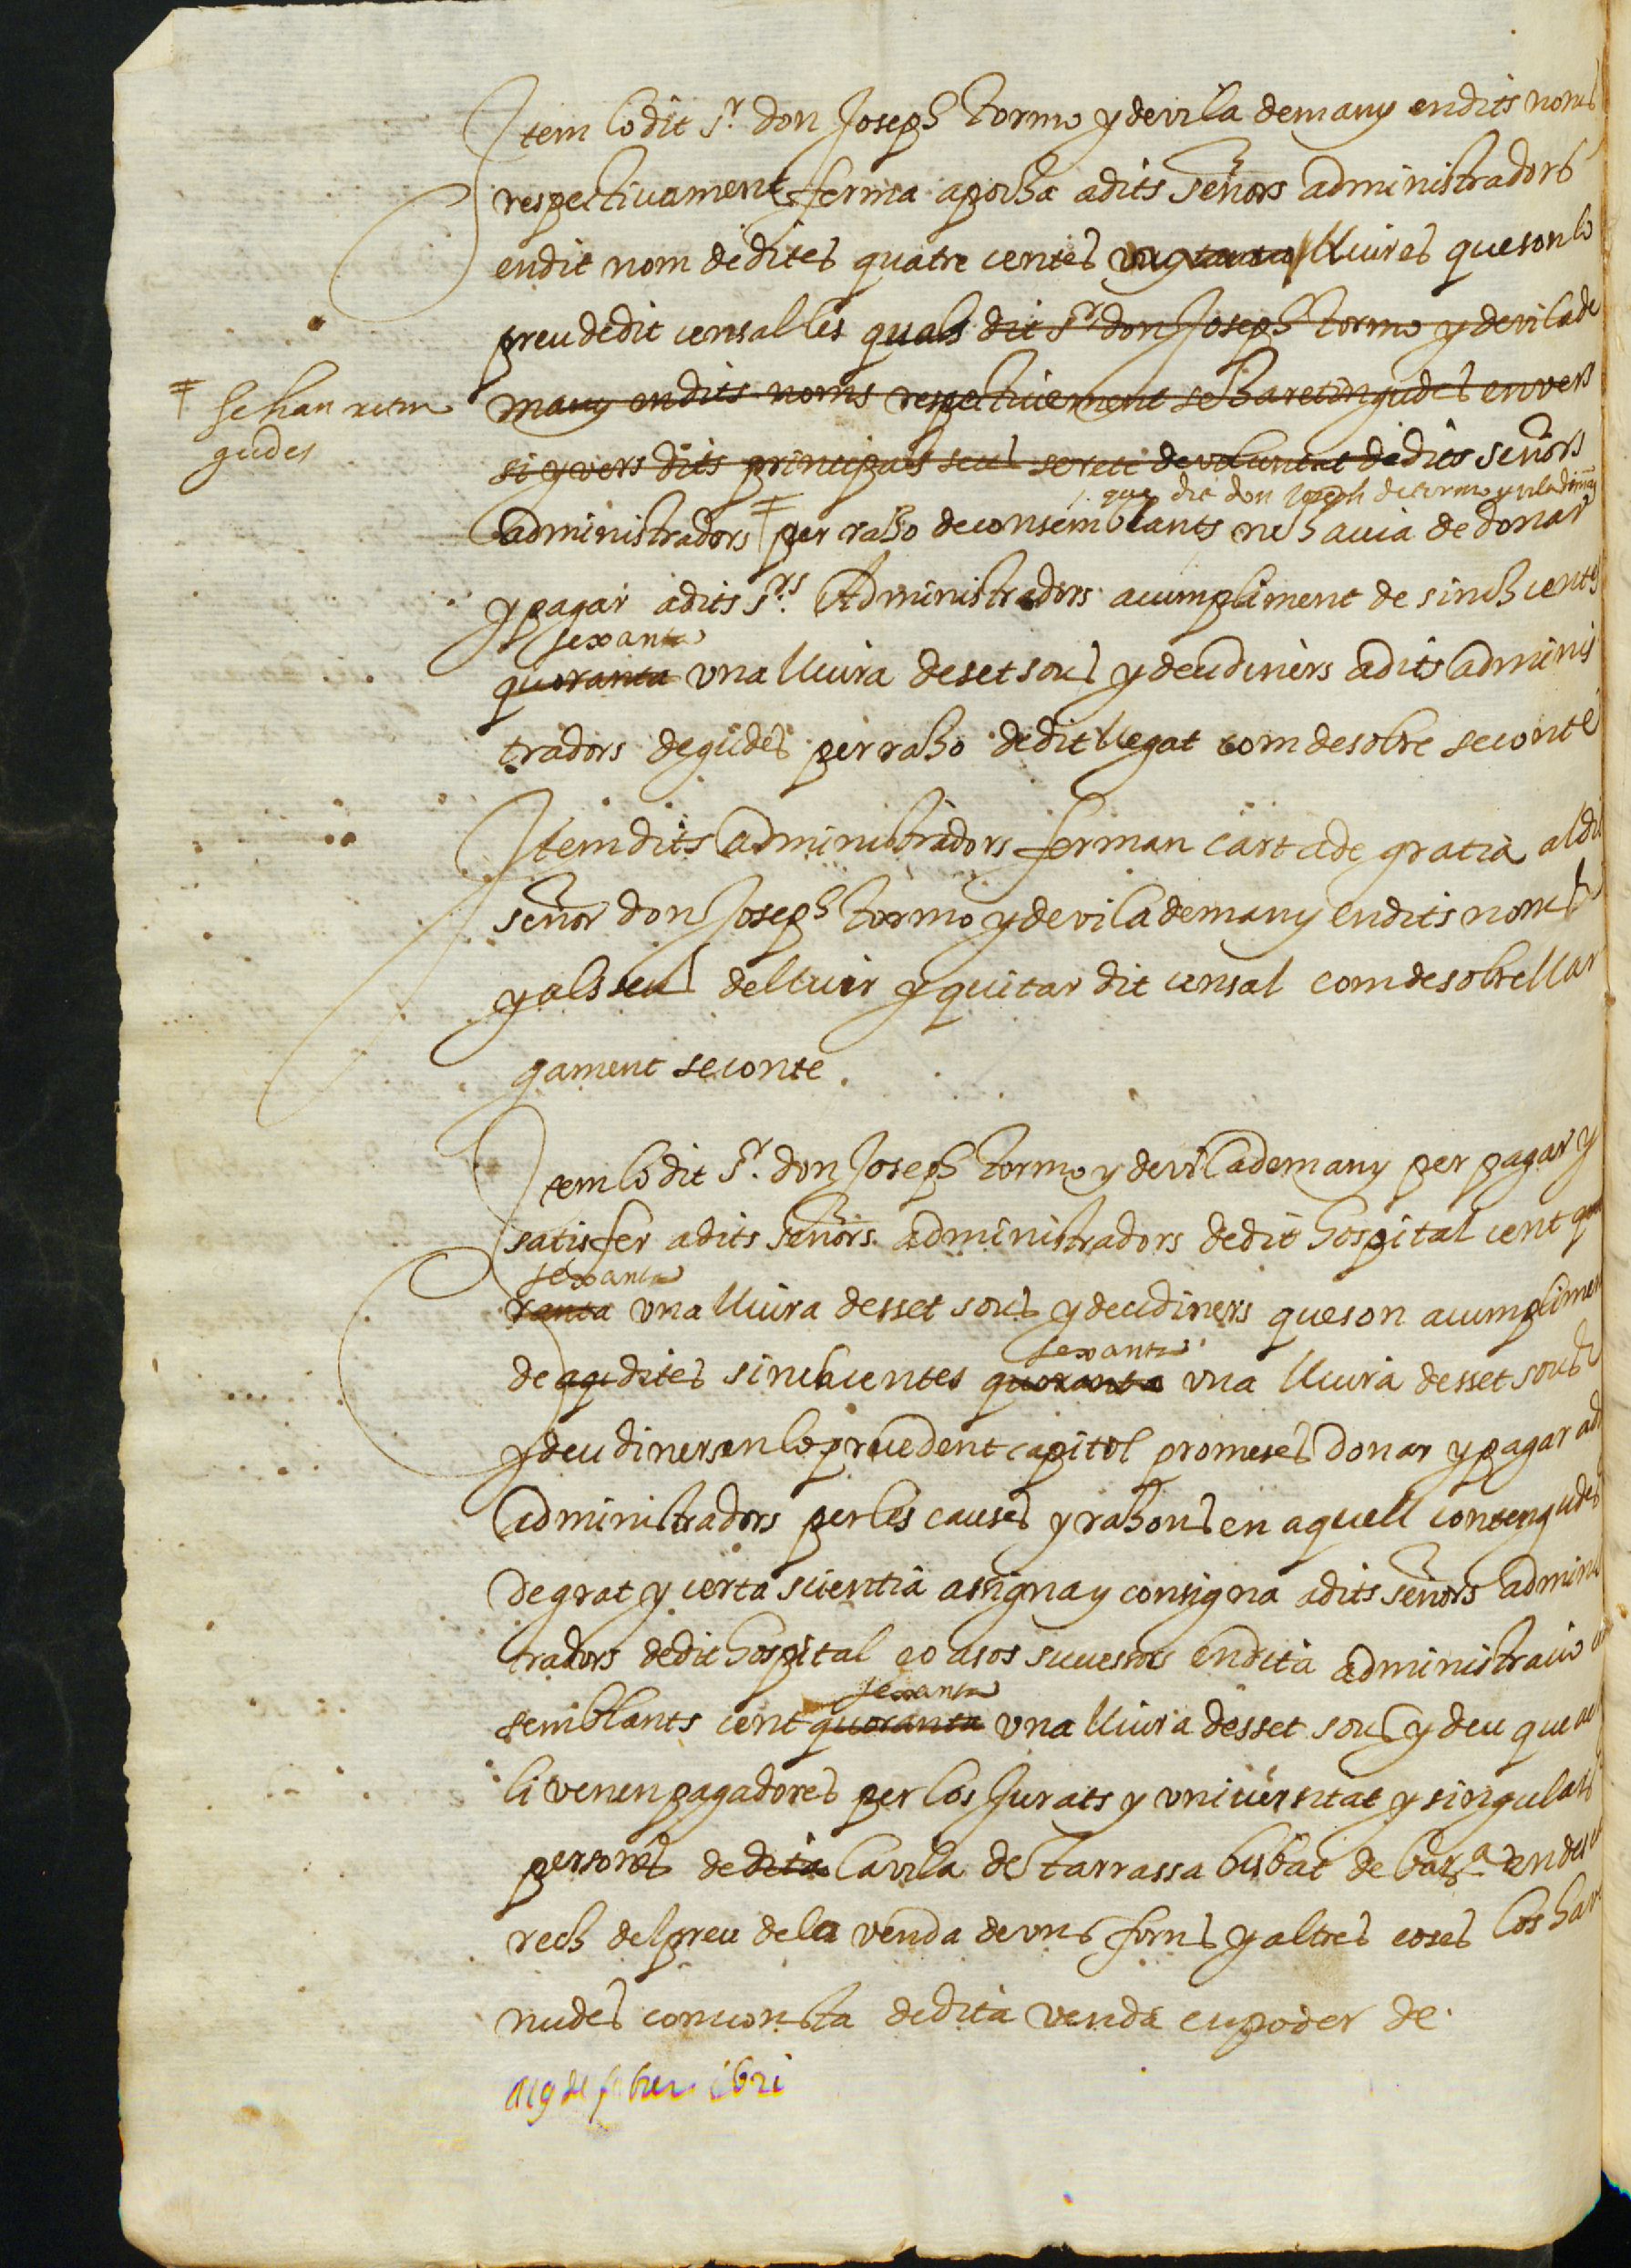 Item lo dit Sr. don Joseph tormo y de vilademany en dits noms
respectivament ferma apocha a dits señors administradors
en dit nom de dites quatre centes lliures que son lo
preu de dit censal les quals dit Sr. don Joseph tormo y de vilade
many en dits noms respectivement se ha retingudes envers
si y vers dits principals seus de voluntat de dits señors
‡ se han retin
gudes
que dit don Joseph de tormo y vilademany
administradors ‡ per raho de consemblants ne havia de donar
y pagar a dits Srs. Administradors a cumpliment de sinch centes
sexanta
quoranta una lliura deset sous y deu diners a dits adminis
tradors degudes per raho de dit llegat com desobre se conte
Item dits administradors ferman carta de gratia al dit
señor don Joseph tormo y de vilademany en dits noms
y als seus de lluir y quitar dit censal com desobre llar
gament se conte.
Item lo dit Sr. don Joseph tormo y de vilademany per pagar y
satisfer a dits señors administradors de dit hospital cent quo
sexanta
ranta una lliura desset sous y deu diners que son a cumpliment
sexanta
de aqdites sinch centes quoranta una lliura desset sous
y deu diners en lo precedent capitol promeses donar y pagar a d
administradors per les causes y rahons en aquell contengudes
de grat y certa scientia assigna y consigna a dits señors adminis
tradors de dit hospital eo a sos successors en dita administracio
sexanta
semblants cent quoranta una lliura desset sous y deu que a
li venen pagadores per los Jurats y universitat y singulars
persones de dita la vila de tarrassa bisbat de Barna en des
rech del preu de la venda de uns forns y altres coses los ha ve
nudes com consta de dita venda en poder de
a 19 de febrer